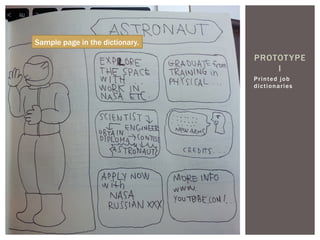 ASTRONAUT
Sample page in the dictionary.
EXPLORE
THE SPACE
WITH...
WORK IN
NASA ETC.
GRADUATE from
TRAINING in
PHYSICAL....
SCIENTIST
ENGINEER
OBTAIN
DIPLOMA
ASTRONAUT
CREDITS
APPLY NOW
with
NASA
RUSSIAN XXX
MORE INFO
WWW.
YOUTUBE.COM/.
PROTOTYPE
I
Printed job
dictionaries